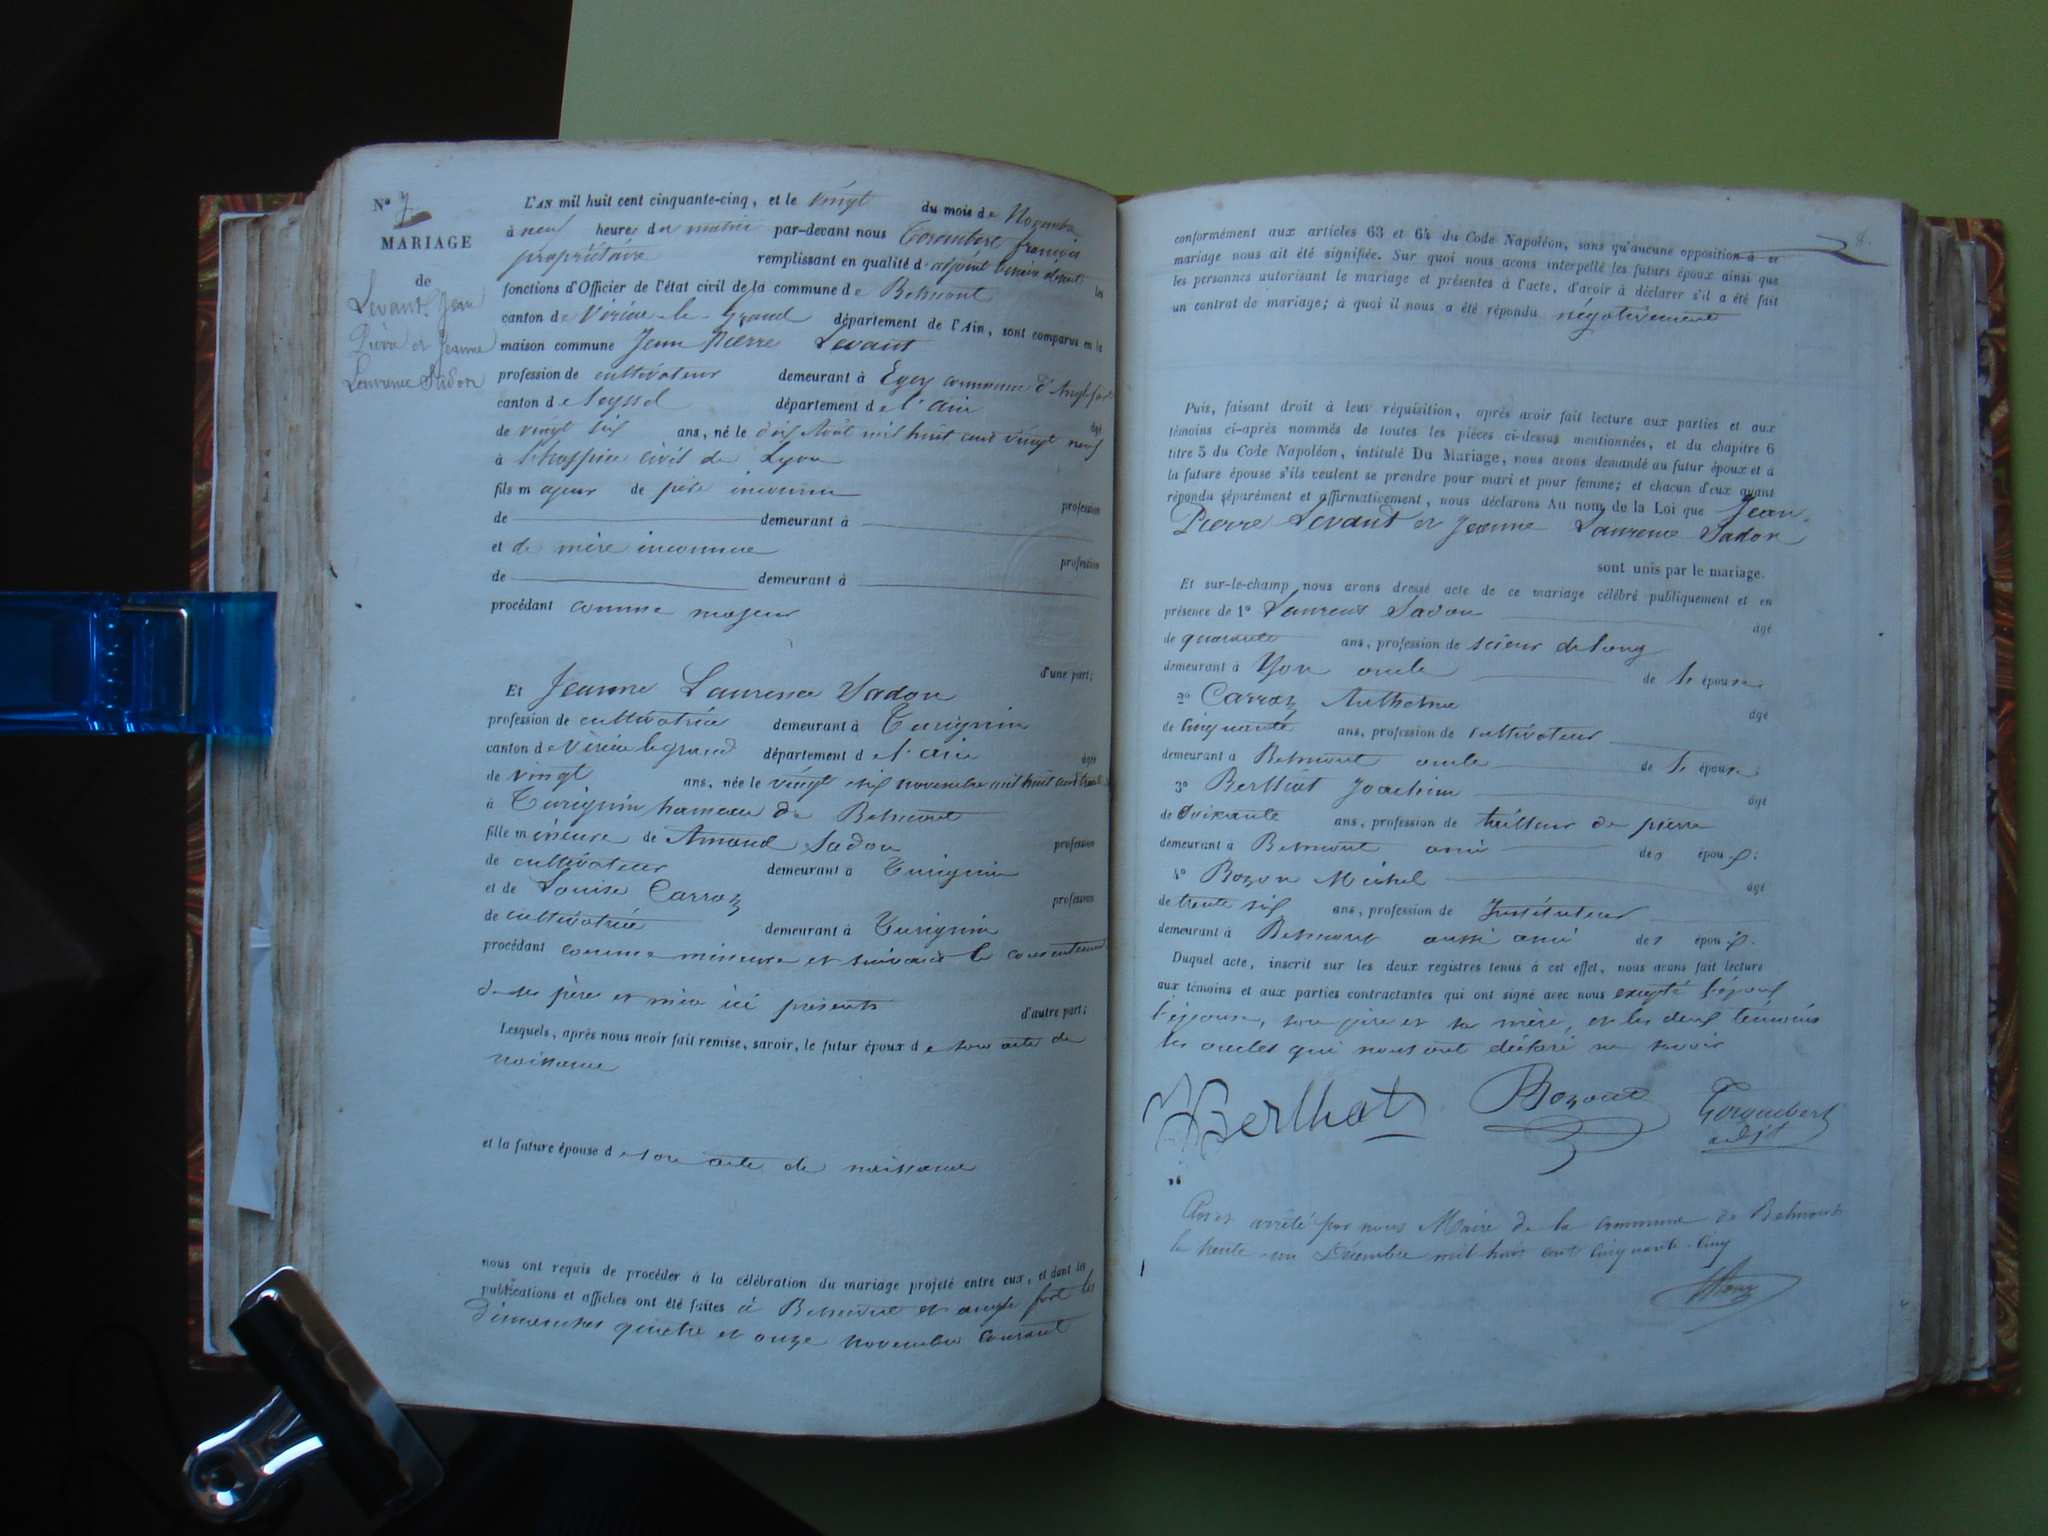 N° 7
MARIAGE
de
Levant Jean
Pierre et Jeanne
Laurence Sadon
L'AN mil huit cent cinquante-cinq, et le vingt du mois de Novembre
à neuf heure du matin par-devant nous Gorembert françois
propriétaire remplissant en qualité d'adjoint les
fonctions d'Officier de l'état civil de la commune de Belmont
canton de Virieu-le-Grand département de l'Ain, sont comparus en la
maison commune Jean Pierre Levant
profession de cultivateur demeurant à commune d'Anglefort
canton de Seyssel département de l'ain âgé
de vingt six ans, né le dix Août mil huit cent vingt neuf
à L'hospice civil de Lyon
fils majeur de père inconnu profession
de demeurant à
et de mère inconnue profession
de demeurant à
procédant comme majeur
d'une part;
Et Jeanne Laurence Sadon
profession de cultivatrice demeurant à Turignin
canton de Virieu le grand département de l'ain âgée
de vingt ans, née le vingt six novembre mil huit cent trente
à Turignin hameau de Belmont
fille mineure de Amand Sadon profession
de cultivateur demeurant à Turignin
et de Louise Carraz profession
de cultivatrice demeurant à Turignin
procédant comme mineure et suivant le consentement
de ses père et mère ici présents d'autre part;
Lesquels, après nous avoir fait remise, savoir, le futur époux de son acte de
naissance
et la future épouse de son acte de naissance
nous ont requis de procéder à la célébration du mariage projeté entre eux, et dont les
publications et affiches ont été faites à Belmont et anglefort les
dimanches quatre et onze novembre courant
8.
conformément aux articles 63 et 64 du Code Napoléon, sans qu'aucune opposition à ce
mariage nous ait été signifiée. Sur quoi nous avons interpellé les futurs époux ainsi que
les personnes autorisant le mariage et présentes à l'acte, d'avoir à déclarer s'il a été fait
un contrat de mariage; à quoi il nous a été répondu négativement
Puis, faisant droit à leur réquisition, après avoir fait lecture aux parties et aux
témoins ci-après nommés de toutes les pièces ci-dessus mentionnées, et du chapitre 6
titre 5 du Code Napoléon, intitulé Du Mariage, nous avons demandé au futur époux et à
la future épouse s'ils veulent se prendre pour mari et pour femme; et chacun d'eux ayant
répondu séparément et affirmativement, nous déclarons Au nom de la Loi que Jean
Pierre Levant et Jeanne Laurence Sadon
sont unis par le mariage.
Et sur-le-champ nous avons dressé acte de ce mariage célébré publiquement et en
présence de 1° Laurent Sadon âgé
de quarante ans, profession de scieur de long
demeurant à Yon oncle de l'épouse
2° Carraz Anthelme âgé
de cinquante ans, profession de cultivateur
demeurant à Belmont oncle de l'épouse
3° Berthet Joachim âgé
de soixante ans, profession de tailleur de pierre
demeurant à Belmont ami des époux;
4° Bozon Michel âgé
de trente six ans, profession de Instituteur
demeurant à Belmont aussi ami des époux.
Duquel acte, inscrit sur les deux registres tenus à cet effet, nous avons fait lecture
aux témoins et aux parties contractantes qui ont signé avec nous excepté l'époux
l'épouse, son père et sa mère, et les deux témoins
les oncles qui nous ont déclaré ne savoir
Berthet Bozon Gorembert
adjt
Clos et arrêté par nous Maire de la commune de Belmont
le trente-un Décembre mil huit cent cinquante-cinq